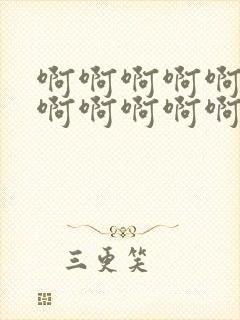 啊啊啊啊啊
啊啊啊啊啊
三更笑